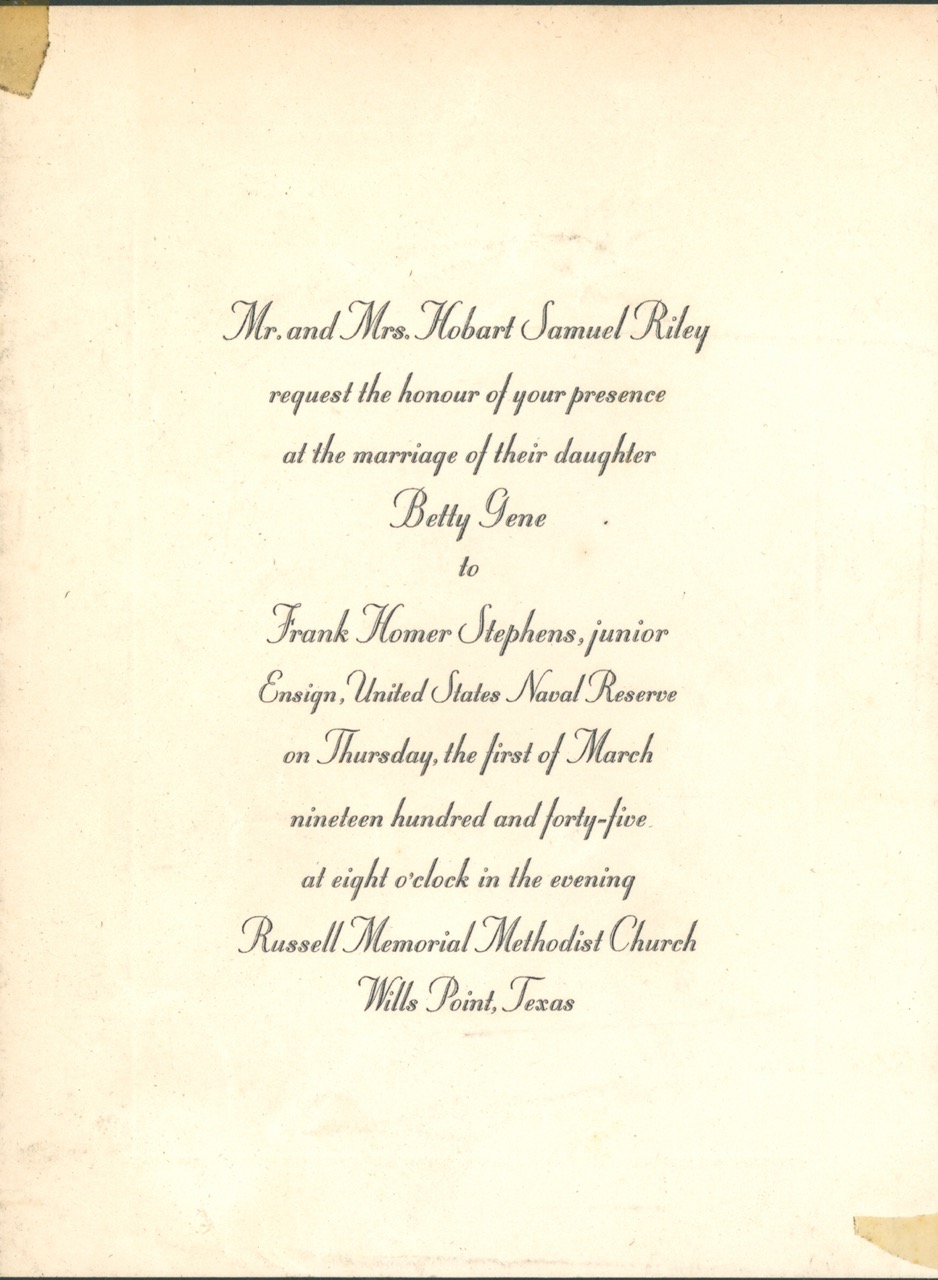 Mr. and Mrs. Hobart Samuel Riley
request the honour of your presence
at the marriage of their daughter
Betty Gene
to
Frank Homer Stephens, junior
Ensign, United States Naval Reserve
on Thursday, the first of March
nineteen hundred and forty-five
at eight o'clock in the evening
Russell Memorial Methodist Church
Wills Point, Texas